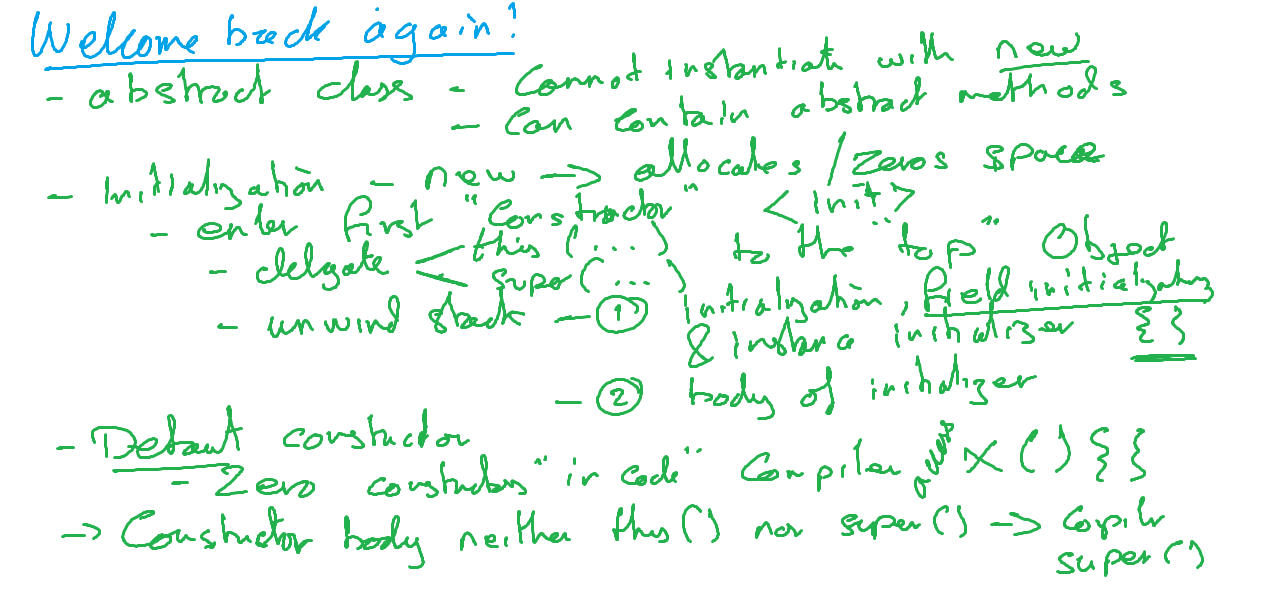 Welcome back again!
- abstract class - Cannot instantiate with new
- Can contain abstract methods
- Initialization - new -> allocates / zeros space
- enter first "Constructor" <init>
- delegate < this (...) super (...) to the "top" Object
- unwind stack - ① initialization, field initializing
& instance initializer { }
- ② body of initializer
- Default constructor
- Zero constructors "in code" Compiler X ( ) { }
-> Constructor body neither this() nor super() -> Compiler
super()